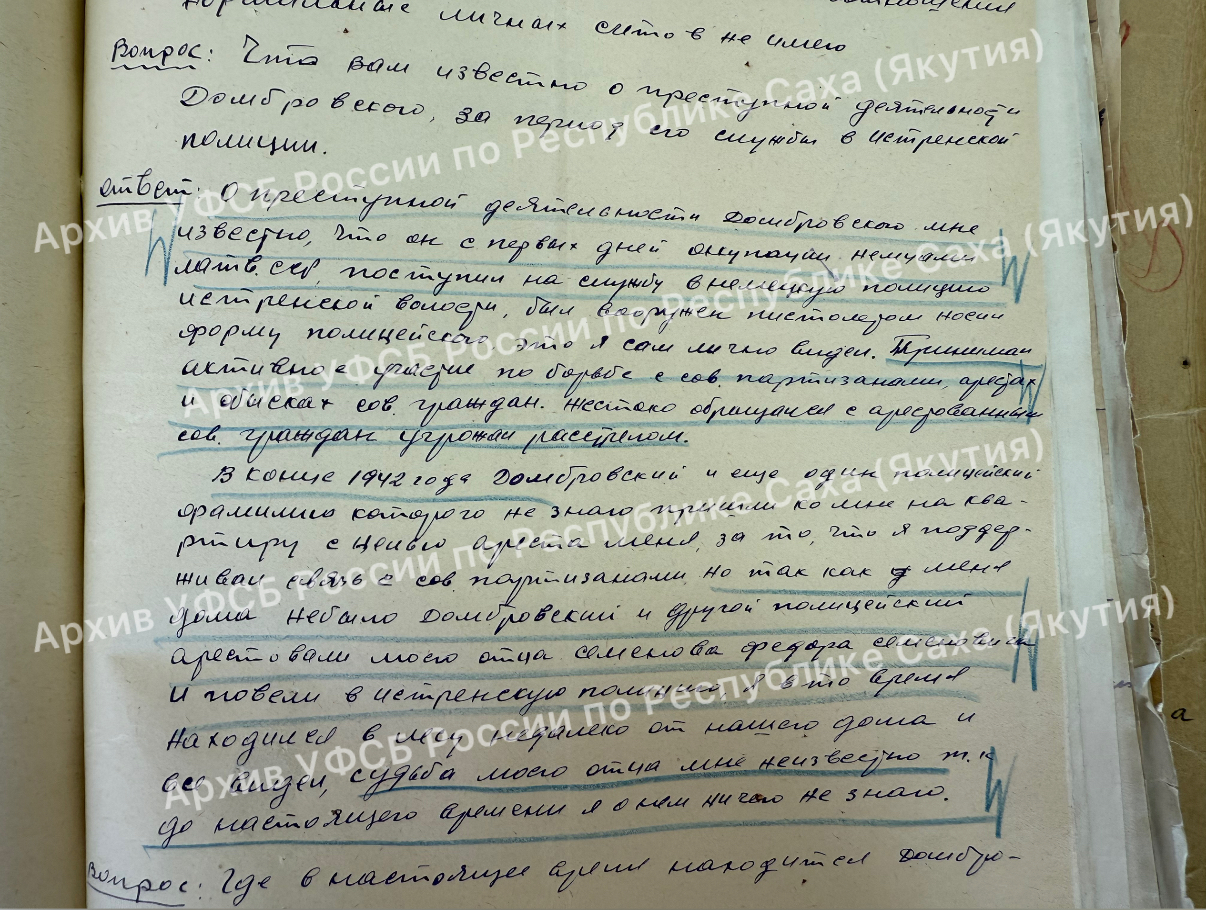 нормальные личных счетов не имею
Вопрос: Что вам известно о преступной деятельности
Домбровского, за период его службы в истренской
полиции.
ответ: О преступной деятельности Домбровского мне
известно, что он с первых дней оккупации немцами
латв. сср, поступил на службу в немецкую полицию
истренской волости, был вооружен пистолетом носил
форму полицейского это я сам лично видел. Принимал
активное участие по борьбе с сов. партизанами, арестах
и обысках сов. граждан. жестоко обращался с арестованными
сов. граждан угрожал расстрелом.
В конце 1942 года Домбровский и еще один полицейский
фамилию которого не знаю пришли ко мне на ква-
ртиру с целью ареста меня, за то, что я поддер-
живал связь с сов партизанами но так как я меня
дома небыло Домбровский и другой полицейский
арестовали моего отца семенова федора семеновича
и повели в истренскую полицию, я в то время
находился в лесу недалеко от нашего дома и
все видел, судьба моего отца мне неизвестно т.к
до настоящего времени я о нем ничего не знаю.
Вопрос: Где в настоящее время находится Домбро-
Архив УФСБ России по Республике Саха (Якутия)
Архив УФСБ России по Республике Саха (Якутия)
Архив УФСБ России по Республике Саха (Якутия)
Архив УФСБ России по Республике Саха (Якутия)